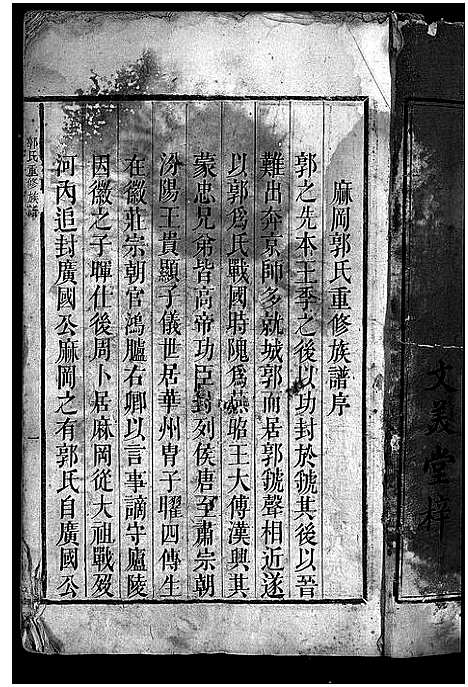 文美堂梓
麻岡郭氏重修族譜序
郭之先本王季之後以功封於虢其後以晉
難出奔京師多就城郭而居郭虢聲相近遂
以郭爲氏戰國時隗爲燕昭王大傅漢興其
蒙忠兄弟皆高帝功臣封列侯唐至肅宗朝
汾陽王貴顯子儀世居華州冑子曜四傳生
在徽莊宗朝官鴻臚右卿以言事謫守廬陵
因徽之子暉仕後周卜居麻岡從大祖戰歿
河內追封廣國公麻岡之有郭氏自廣國公
郭氏重修族譜